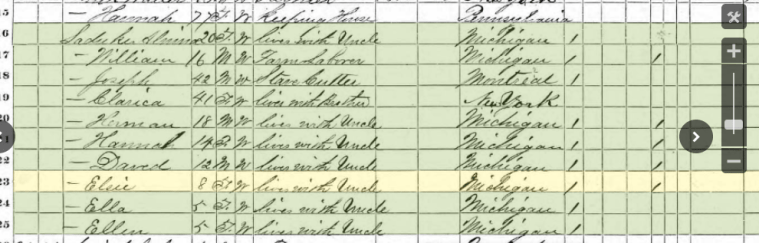 15 — Hannah 77 F W Keeping House Pennsylvania
16 20 F W lives with Uncle Michigan 1
17 — William 16 M W Farm Laborer Michigan 1 1
18 — Joseph 42 M W Cutter Montreal 1
19 — Clarica 41 F W lives with Brother New York
20 — Herman 18 M W lives with Uncle Michigan 1 1
21 — Hannah 14 F W lives with Uncle Michigan 1 1
22 — David 12 M W lives with Uncle Michigan 1 1
23 — Elsie 8 F W lives with Uncle Michigan 1 1
24 — Ella 5 F W lives with Uncle Michigan 1
25 — Ellen 5 F W lives with Uncle Michigan 1